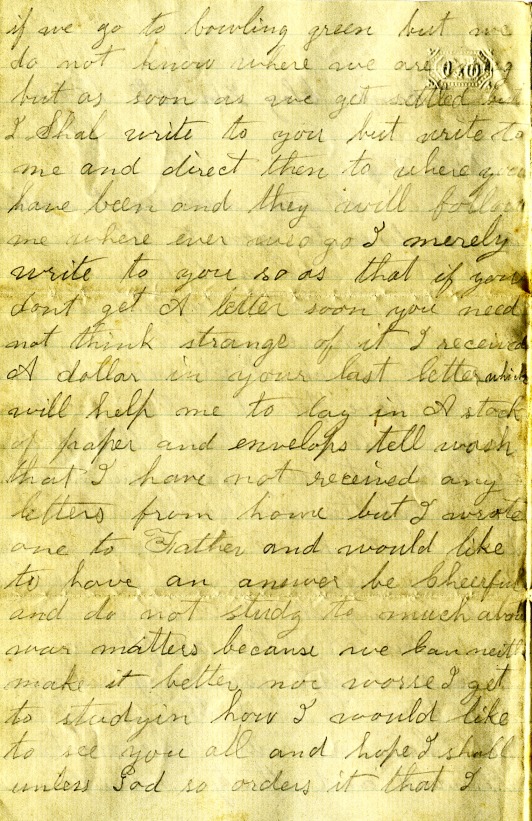 if we go to bowling green but we
do not know where we are
but as soon as we get settled
I Shal write to you but write to
me and direct then to where you
have been and they will follow
me where ever we go I merely
write to you so as that if you
dont get A letter soon you need
not think strange of it I received
A dollar in your last letter which
will help me to lay in A stock
of paper and envelops tell wash
that I have not received any
letters from home but I wrote
one to Father and would like
to have an answer be Cheerful
and do not study to much about
war matters because we Can neith
make it better nor worse I get
to studyin how I would like
to see you all and hope I shall
unless God so orders it that I